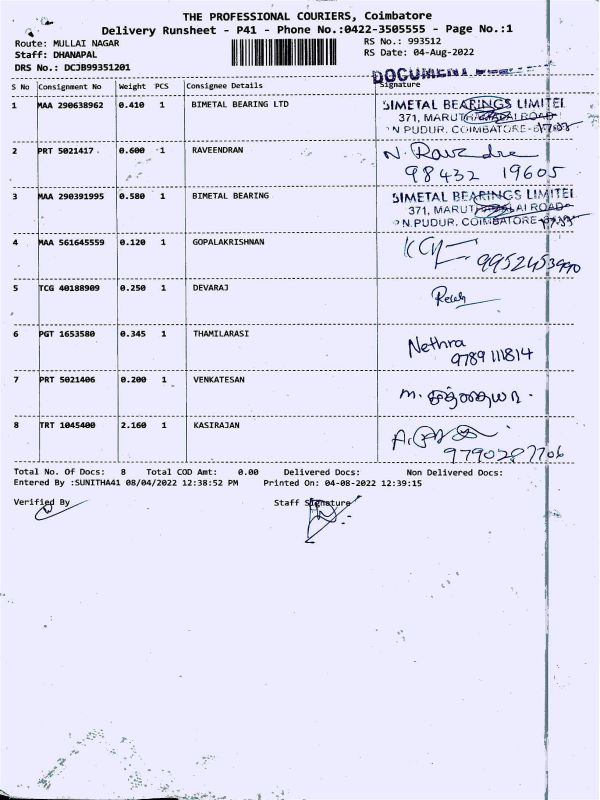 THE PROFESSIONAL COURIERS, Coimbatore
Delivery Runsheet - P41 - Phone No.:0422-3505555 - Page No.:1
Route: MULLAI NAGAR RS No.: 993512
Staff: DHANAPAL RS Date: 04-Aug-2022
DRS No.: DCJB99351201
DOCUMENT
S No Consignment No Weight PCS Consignee Details Signature
1 MAA 290638962 0.410 1 BIMETAL BEARING LTD BIMETAL BEARINGS LIMITED
371, ROAD
N PUDUR, COIMBATORE-
2 PRT 5021417 0.600 1 RAVEENDRAN N. Ravendra
98432 19605
3 MAA 290391995 0.580 1 BIMETAL BEARING BIMETAL BEARINGS LIMITED
371, ROAD
N.PUDUR, COIMBATORE
4 MAA 561645559 0.120 1 GOPALAKRISHNAN
5 TCG 40188909 0.250 1 DEVARAJ
6 PGT 1653580 0.345 1 THAMILARASI Nethra
9789 111814
7 PRT 5021406 0.200 1 VENKATESAN
8 TRT 1045400 2.160 1 KASIRAJAN
Total No. Of Docs: 8 Total COD Amt: 0.00 Delivered Docs: Non Delivered Docs:
Entered By :SUNITHA41 08/04/2022 12:38:52 PM Printed On: 04-08-2022 12:39:15
Verified By Staff Signature